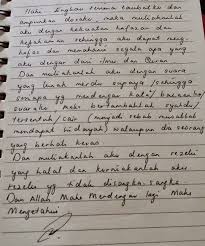 Ilahi Engkau terima taubatku dan
ampunkan dosaku, maka muliakanlah
aku dengan kekuatan hafazan dan
kefahaman sehingga aku dapat meng-
hafaz dan memahami segala apa yang
aku dengar dari ilmu dan Quran
Dan muliakanlah aku dengan suara
yang lunak merdu supaya / sehingga
sesiapa yg mendengar kata / bacaanku /
suaraku maka bertambahlah syahdu /
tersentuh / cair (menjadi sebab
mendapat hidayah) walaupun dia seorang
yang berhati keras.
Dan muliakanlah aku dengan rezeki
yang halal dan kurniakanlah aku
rezeki yg tidak disangka-sangka.
Dan Allah Maha Mendengar lagi Maha
Mengetahui